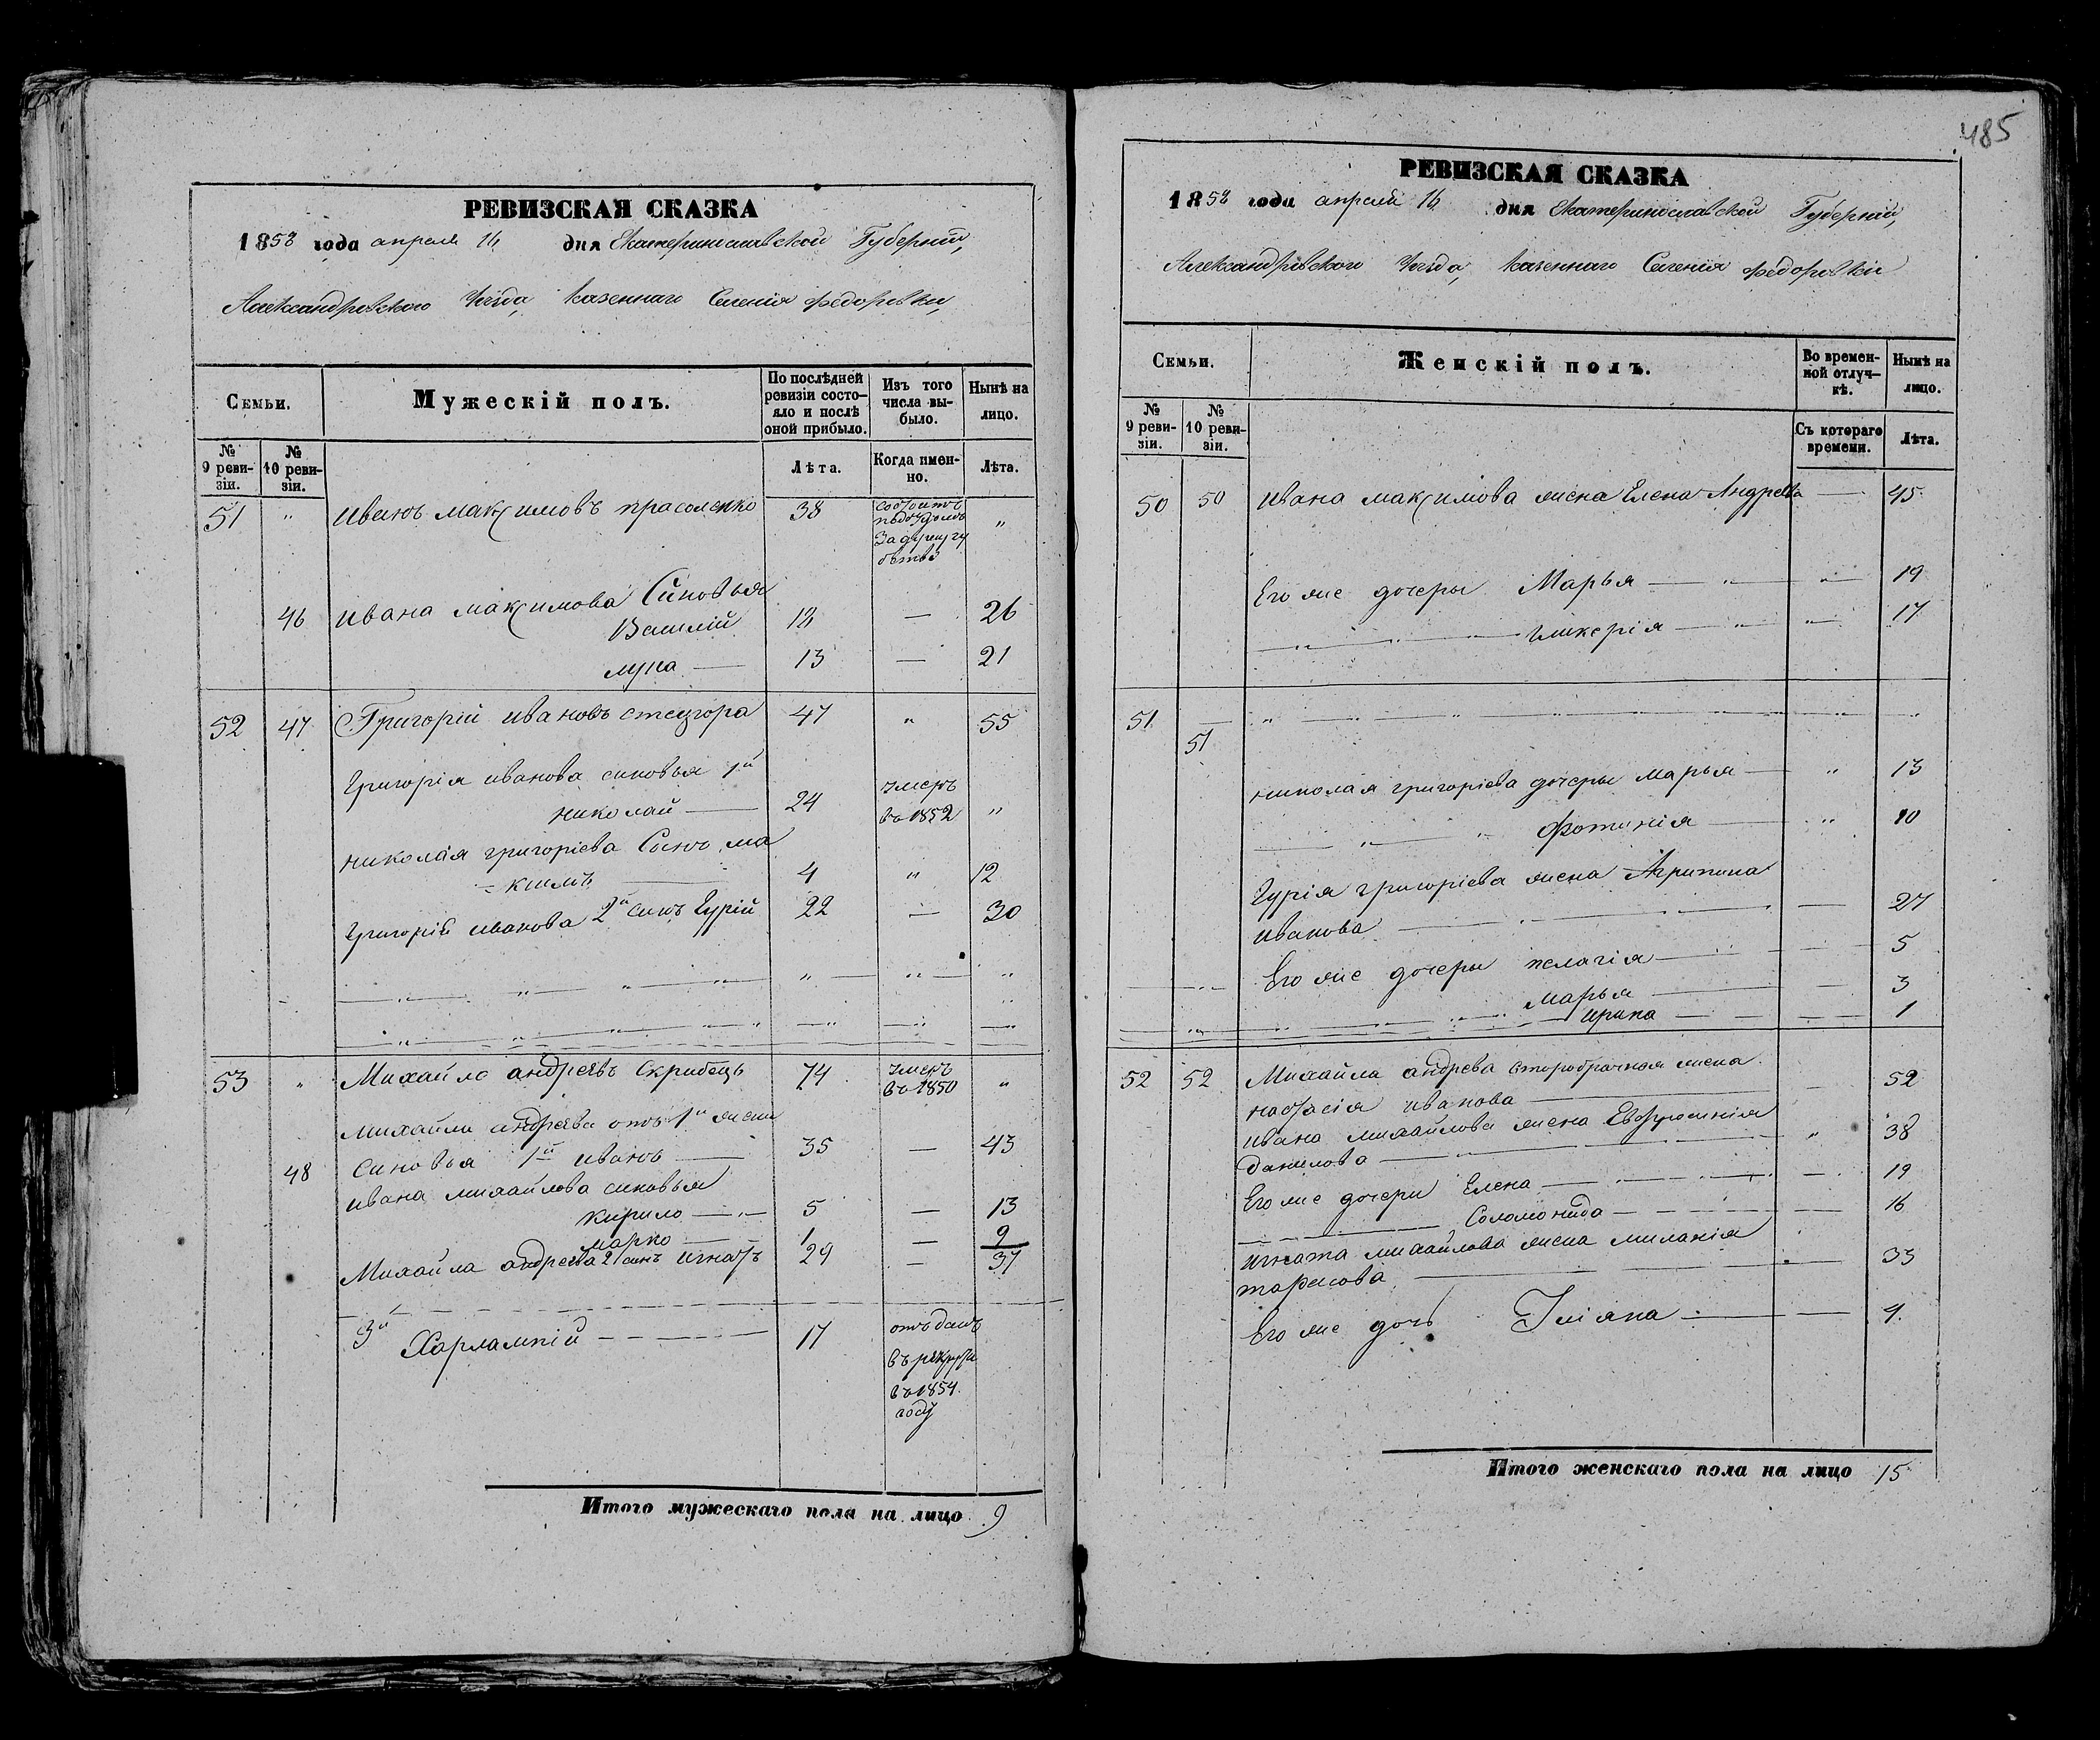 РЕВИЗСКАЯ СКАЗКА
1858 года апреля 16 дня Екатеринославской Губернии,
Александровского Уезда, казенного Селения Федоровки,
Семьи.
Мужескій полъ.
По послѣдней ревизіи состо-яло и послѣ оной прибыло.
Изъ того числа вы-было.
Нынѣ на лицо.
№ 9 реви-зіи.
№ 10 реви-зіи.
Лѣта.
Когда имен-но.
Лѣта.
51 " Иванъ Максимовъ Прасоленко 38 состоитъ подъ судомъ "
46 Ивана Максимова Синовья
Василій 18 — 26
Лупа — 13 — 21
52 47 Григорій Ивановъ Стецгора 47 " 55
Григорія Иванова синовья 1й
Николай — 24 умеръ въ 1852 "
Николая Григоріева Сынъ Ма
= ксимъ — 4 " 12
Григорія Иванова 2й синъ Гурій 22 — 30
53 " Михайло Андреевъ Скрибецъ 74 умеръ въ 1850 "
Михайла Андреева отъ 1й жены
48 синовья 1й Иванъ — 35 — 43
Ивана Михайлова синовья
Кирило — 5 — 13
Марко — 1 — 9
Михайла Андреева 2 синъ Игнатъ 29 — 37
3й Харлампій — 17 отъданъ
въ рекруты
въ 1854
году
Итого мужескаго пола на лицо 9
485
РЕВИЗСКАЯ СКАЗКА
1858 года апреля 16 дня Екатеринославской Губерніи,
Александровского Уезда, казенного Селения Федоровки
Семьи.
Женскій полъ.
Во времен-ной отлуч-кѣ.
Нынѣ на лицо.
№ 9 реви-зіи.
№ 10 реви-зіи.
Съ котораго времени.
Лѣта.
50 50 Ивана Максимова жена Елена Андреева — 45
Его же дочеры Марья — " 19
Гликерія — " 17
51 — "
51
Николая Григоріева дочеры Марья — " 13
Фотинія — " 10
Гурія Григоріева жена Агрипина
Иванова — 27
Его же дочеры Пелагія — 5
Марья — 3
Ирина — 1
52 52 Михайла Андрева второбрачная жена
Настасія Иванова — 52
Ивана Михайлова жена Евфросинія
Данилова — " 38
Его же дочери Елена — 19
Соломонида — 16
Игната Михайлова жена Миланія
Тарасова — 33
Его же дочь Уліяна — 4
Итого женскаго пола на лицо 15